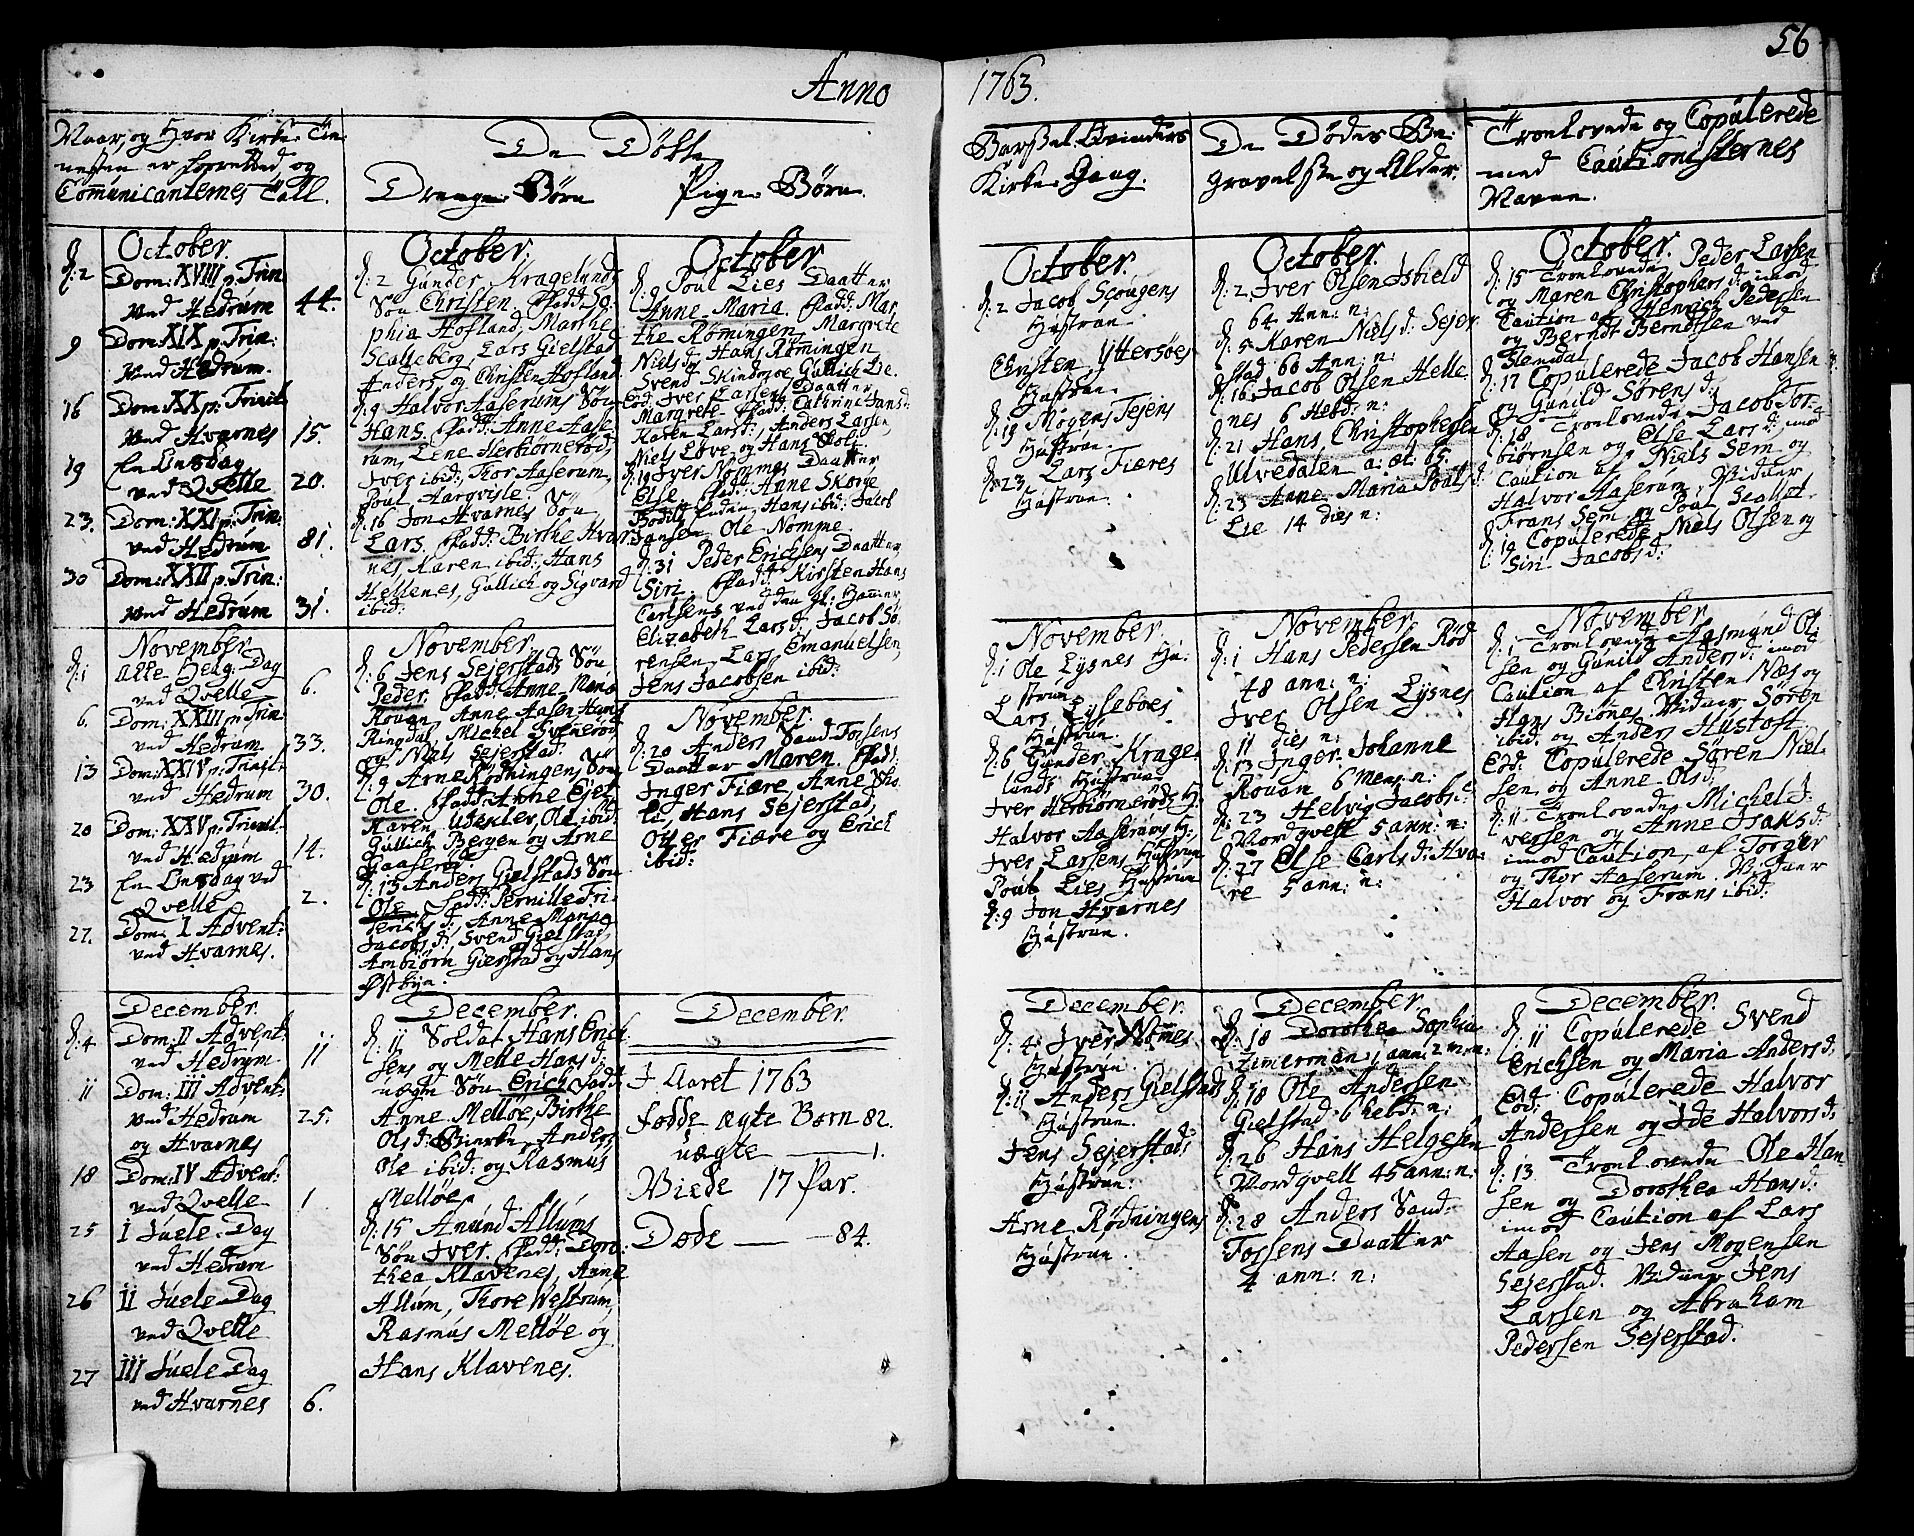 56
Anno 1763.
Naar, og Hvor Kirke Tie
nesten er forretted og
Comunicanternes Tall.
De Døbte
Drenge Børn
Pige Børn.
Barsel Qvinders
Kirke Gang.
De Dødes Be:
gravelse og Alder.
Troelovede og Copulerede
med Cautionisternes
Navne.
October.
d: 2 Dom: XVIII p: Trin
ved Hedrum 44.
9 Dom XIX p: Trin:
ved Hedrum.
16 Dom XX p: Trinit
ved Hvarnes 15.
19 En Onsdag
ved Qvelle 20.
23. Dom: XXI p: Trin:
ved Hedrum 81.
30 Dom: XXII p: Trin:
ved Hedrum 31.
November.
d: 1 Alle Helg: Dag
ved Qvelle 6.
6. Dom: XXIII p: Trin:
ved Hedrum 33.
13 Dom: XXIV p: Trinit:
ved Hedrum 30.
20 Dom: XXV p: Trinit:
ved Hedrum 14.
23 En Onsdag ved
Qvelle 2.
27. Dom: I Advent:
ved Hvarnes.
December.
d: 4 Dom: II Advent:
ved Hedrum 11
11 Dom: III Advent:
ved Hedrum 25.
og Hvarnes
18 Dom: IV Advent:
ved Qvelle 1
25 I Juele Dag
ved Hedrum
26 II Juele Dag
ved Qvelle
27 III Juele Dag
ved Hvarnes 6.
October.
d: 2 Gunder Kragelunds
Søn Christen. fadd: So
phia Hofland, Marthe
Scalleberg, Lars Gielstad
Anders og Christen Hofland
d: 9 Halvor Aaserums Søn
Hans. fadd: Anne Aase
rum, Lene Herbiørnerød,
Iver ibid: Thor Aaserum,
Poul Aarqvisle.
d: 16 Jon Hvarnes Søn
Lars. fadd: Birthe Hvar
nes Karen ibid: Hans
Hellenes, Gullich og Sigvard
ibid:
November.
d: 6 Jens Sejerstads Søn
Peder. fadd: Anne Marie
Rouan, Anne Aasen Hans
Ringdal, Michel Svenerød
og Niels Sejerstad.
d: 9 Arne Rødningen Søn
Ole. fadd: Anne
Karen Ole ibid:
Gullich Bergen og Arne
d: 13 Anders Gielstads Søn
Ole. fadd: Pernille Fri
derichs d: Anne Manna
Jacobs d: Svend Gielstad,
Ambiørn Gierstad og Hans
Østbyn.
December.
d: 11 Soldat Hans Erich
sens og Mette Hans d:
uægte Søn Erich fadd:
Anne Melløe, Birthe
Ols d: Bierke, Anders
Ole ibid: og Rasmus
Melløe
d: 15 Anund Allums
Søn Iver. fadd: Doro
thea Klavenes, Anne
Allum, Thore Westrum,
Rasmus Melløe og
Hans Klavenes.
October
d: 9 Poul Lies Daatter
Anne Maria. fadd: Mar
the Rømingen, Margrete
Niels d. Hans Rømingen
Svend Skindsoe, Gullich Lie.
Eod: Iver Larsens Daatter
Margrete fadd: Cathrine Jans d:
Karen Lars d: Anders Larsen,
Niels Løve og Hans Holt.
d: 19 Iver Nommes Daatter
Else. fadd: Anne Skorge
Bodil Hans ibid: Jacob
Jansen Ole Nomme.
d: 31 Peder Erichsen Daatter
Siri. fadd: Kirsten Hans
Carlsens ved den gl: Hammer
Elizabeth Lars d: Jacob Sø
rensen, Lars Emanuelsen,
Jens Jacobsen ibid:
November.
d: 20 Anders Sand-Tossens
Daatter Maren. fadd:
Inger Fiære, Anne
Lie, Hans Sejerstad,
Otter Fiære og Erich
ibid:
December.
I Aaret 1763
Fødde ægte Børn 82.
uægte — 1.
Viede 17 Par.
Døde — 84.
October.
d: 2 Jacob Scougens
Hustrue.
Christen Yttersøes
Hustrue.
d: 19 Mogens Tejens
Hustrue.
d: 23 Lars Fiæres
Hustrue.
November.
d: 1 Ole Lysnes Hu:
strue
Lars Eyleboes
Hustrue.
d: 6 Gunder Krage
lunds Hustrue
Iver Herbiørnerøds H:
Halvor Aaserøms H:
Iver Larsens Hustrue
Poul Lies Hustrue
d: 9 Jon Hvarnes
Hustrue.
December.
d: 4 Iver Nømes
Hustrue.
d: 11 Anders Gielstads
Hustrue.
Jens Sejerstads
Hustrue:
Arne Rødningens
Hustrue.
October.
d: 2. Iver Olsen Isbield
64 Ann: n:
d: 5 Karen Niels d: Sejer
stad 60 Ann: n:
d: 16 Jacob Olsen Helle
nes 6 Hebd: n:
d: 21 Hans Christophersen
Ulvedalen a: æt: 65.
d: 23 Anne Maria Pouls d:
Lie 14 dies n:
November.
d: 1 Hans Pedersen Rød
48 ann: n:
Iver Olsen Lysnes
11 dies n:
d: 13 Inger Johanne
Rouan 6 Mens: n:
d: 23 Helvig Jacobs d:
Nordqvelle 5 ann: n:
d: 27 Else Carls d: Hva
re 5 ann: n:
December.
d: 18 Dorothea Sophia
Zimerman 1 ann: 2 m: n:
d: 18 Ole Andersen
Gielstad 6 hebd: n:
d: 26 Hans Helgesen
Nordqvell 45 ann: n:
d: 28 Anders Sand:
Tossens Daatter
4 ann: n:
October.
d: 15 Troelovede Peder Larsen
og Maren Christophers d: imod
Caution af Henrich Pedersen
og Berndt Berndtsen ved
Elendal
d: 17 Copulerede Jacob Hansen
og Gunild Sørens d:
d: 18 Troelovede Jacob Tor
biørnsen og Else Lars d: imod
Caution af Niels Sem og
Halvor Aaserum, Vidner
Frans Sem og Poul Scallet.
d: 19 Copulerede Niels Olsen og
Siri Jacobs d:
November.
d: 1 Troelovede Aasmund Ol
sen og Gunild Anders d: imod
Caution af Christen Næs og
Hans Biønes, Vidner Søren
ibid: og Anders Hustoft.
Eod: Copulerede Søren Niel
sen og Anne Ols d:
d: 11 Troelovede Michel I
versen og Anne Isaks d:
imod Caution, af Torger
og Thor Aaserum. Vidner
Halvor og Frans ibid:
December.
d: 11 Copulerede Svend
Erichsen og Maria Anders d:
Eod: Copulerede Halvor
Andersen og Ide Halvors d:
d: 13 Troelovede Ole Han
sen og Dorothea Hans d:
imod Caution af Lars
Aasen og Jens Mogensen
Sejerstad. Vidner Jens
Larsen og Abraham
Pedersen Sejerstad.